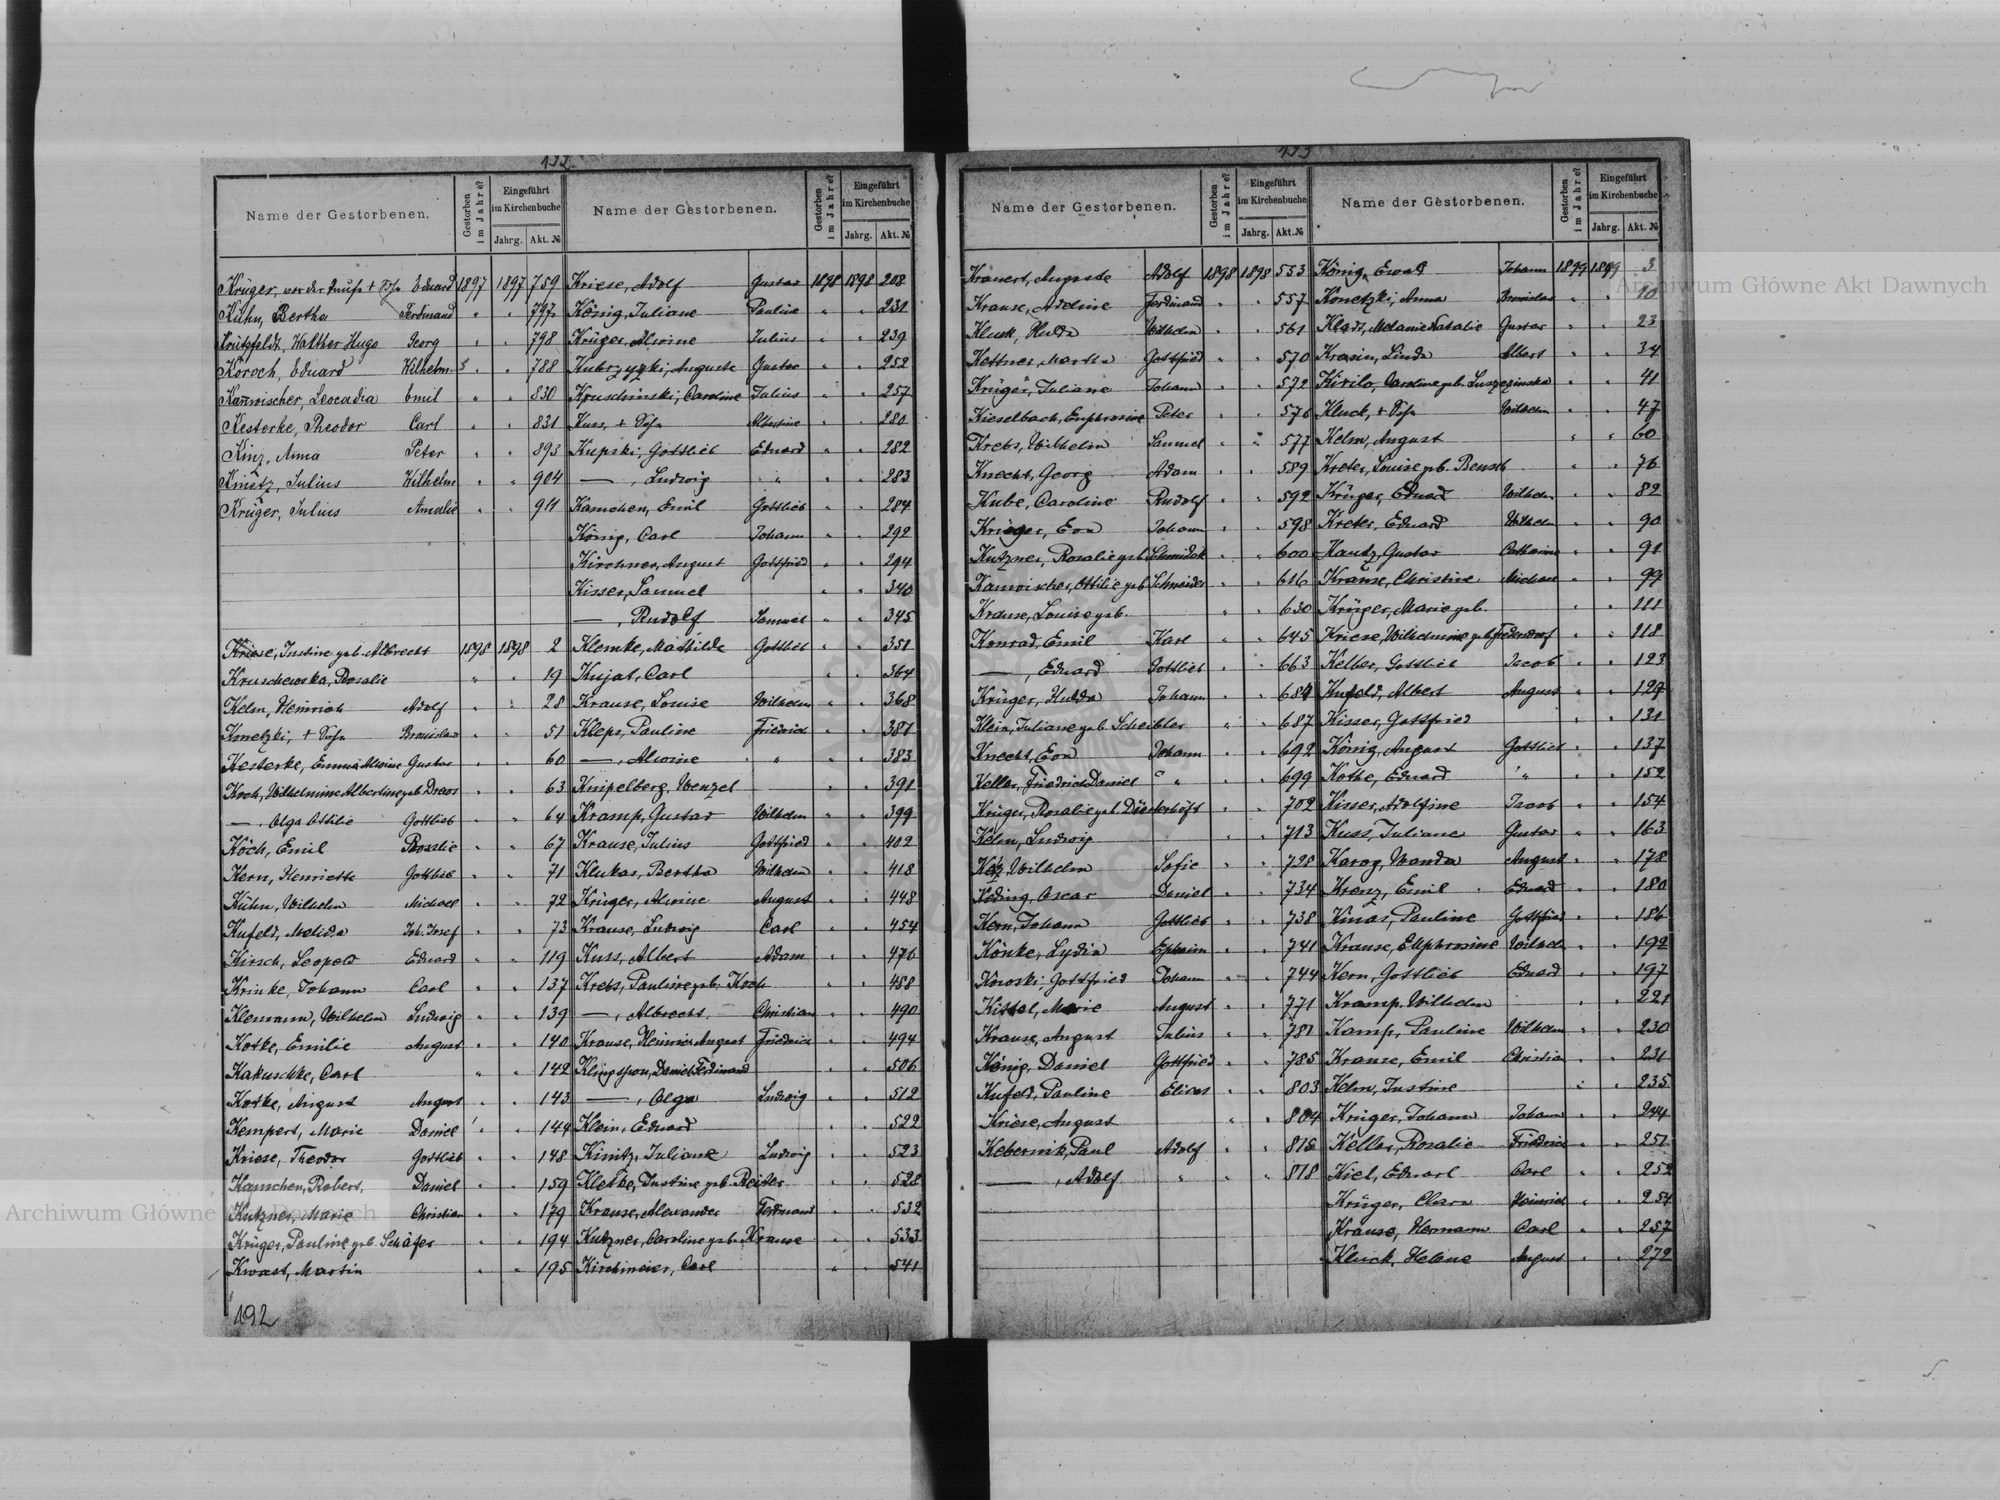 192.
Name der Gestorbenen. Gestorben im Jahre? Eingeführt im Kirchenbuche Jahrg. Akt. №
Krüger, vor der Taufe + Sohn Eduard 1897 1897 759
Kühn, Bertha Ferdinand " " 797
Krützfeldt, Walther Hugo Georg " " 798
Koroch, Eduard Wilhelm " " 788
Kanwischer, Leocadia Emil " " 830
Kesterke, Theodor Carl " " 831
Kinz, Anna Peter " " 893
Kmetz, Julius Wilhelm " " 904
Krüger, Julius Amalie " " 911
Kriese, Justine geb. Albrecht 1898 1898 2
Kruschewska, Rosalie " " 19
Kelm, Heinrich Adolf " " 28
Kmetzki, + Sohn Bronislaw " " 51
Kesterke, Emma Alwine Gustav " " 60
Koch, Wilhelmine Albertine geb. Draws " " 63
—, Olga Ottilie Gottlieb " " 64
Koch, Emil Rosalie " " 67
Kern, Henriette Gottlieb " " 71
Kühn, Wilhelm Michael " " 72
Kufeld, Melida Joh. Josef " " 73
Hirsch, Leopold Eduard " " 119
Krinke, Johann Carl " " 137
Klemann, Wilhelm Ludwig " " 139
Kotke, Emilie August " " 140
Kakuschke, Carl " " 142
Kotke, August August " " 143
Kempert, Marie Daniel " " 144
Kriese, Theodor Gottlieb " " 148
Kamchen, Robert, Daniel " " 159
Kutzner, Marie Christian " " 179
Krüger, Pauline geb. Schäfer " " 194
Kwast, Martin " " 195
192
Name der Gestorbenen. Gestorben im Jahre? Eingeführt im Kirchenbuche Jahrg. Akt. №
Kriese, Adolf Gustav 1898 1898 208
König, Juliane Pauline " " 231
Krüger, Alwine Julius " " 239
Kubrzyzki, Auguste Gustav " " 252
Kruschinski, Caroline Julius " " 257
Kuss, + Sohn Albertine " " 280
Kupski, Gottlieb Eduard " " 282
—, Ludwig " " " 283
Kamchen, Emil Gottlieb " " 284
König, Carl Johann " " 292
Kirchner, August Gottfried " " 294
Kisser, Samuel " " 340
—, Rudolf Samuel " " 345
Klemke, Mathilde Gottlieb " " 351
Kujat, Carl " " 364
Krause, Louise Wilhelm " " 368
Kleps, Pauline Friedrich " " 381
—, Alwine " " " 383
Knipelberg, Wenzel " " 391
Kramp, Gustav Wilhelm " " 399
Krause, Julius Gottfried " " 402
Klukas, Bertha Wilhelm " " 418
Krüger, Alwine August " " 448
Krause, Ludwig Carl " " 454
Kuss, Albert Adam " " 476
Krebs, Pauline geb. Koch " " 488
—, Albrecht Christian " " 490
Krause, Heinrich August Friedrich " " 494
Klingspon, Daniel Ferdinand " " 506
—, Olga Ludwig " " 512
Klein, Eduard " " 522
Kinitz, Juliane Ludwig " " 523
Kletke, Justine geb. Reiter " " 528
Krause, Alexander Ferdinand " " 532
Kutzner, Caroline geb. Krause " " 533
Kirchmeier, Carl " " 541
193
Name der Gestorbenen. Gestorben im Jahre? Eingeführt im Kirchenbuche Jahrg. Akt. №
Kranert, Auguste Adolf 1898 1898 553
Krause, Adeline Ferdinand " " 557
Kluck, Hulda Wilhelm " " 561
Kettner, Martha Gottfried " " 570
Krüger, Juliane Johann " " 572
Kieselbach, Euphrosine Peter " " 576
Krebs, Wilhelm Samuel " " 577
Knecht, Georg Adam " " 589
Kube, Caroline Rudolf " " 592
Krieger, Eva Johann " " 598
Kutzner, Rosalie geb. Schmidtk " " 600
Kanwischer, Ottilie geb. Schneider " " 616
Krause, Louise geb. " " 630
Konrad, Emil Karl " " 645
—, Eduard Gottlieb " " 663
Krüger, Hulda Johann " " 684
Klein, Juliane geb. Scheibler " " 687
Knecht, Eva Johann " " 692
Keller, Friedrich Daniel " " 699
Krüger, Rosalie geb. Düsterhöft " " 702
Kelm, Ludwig " " 713
Wilhelm Sofie " " 728
Keding, Oscar Daniel " " 734
Kern, Johann Gottlieb " " 738
Könke, Lydia Ephraim " " 741
Koroski Gottfried Johann " " 744
Kittel, Marie August " " 771
Krause, August Julius " " 781
König, Daniel Gottfried " " 785
Kufeld, Pauline Elias " " 803
Kriese, August " " 804
Kebernik, Paul Adolf " " 815
—, Adolf " " " 818
Name der Gestorbenen. Gestorben im Jahre? Eingeführt im Kirchenbuche Jahrg. Akt. №
König, Ewald Johann 1899 1899 3
Kmetzki, Anna Bronislaw " " 10
Kladt, Melanie Natalie Gustav " " 23
Krasin, Linda Albert " " 34
Kirilo, Caroline geb. Luszczinska " " 41
Kluck, + Sohn Wilhelm " " 47
Kelm, August " " 60
Kreter, Louise geb. Bensch " " 76
Krüger, Eduard Wilhelm " " 82
Kreter, Eduard Wilhelm " " 90
Kautz, Gustav Catharina " " 91
Krause, Christine Michael " " 99
Krüger, Marie geb. " " 111
Kriese, Wilhelmine geb. Federdorf " " 118
Kelber, Gottlieb Jacob " " 123
Kufeld, Albert August " " 129
Kisser, Gottfried " " 131
König, August Gottlieb " " 137
Kotke, Eduard " " " 152
Kisser, Adolfine Jacob " " 154
Kuss, Juliane Gustav " " 163
Karog, Wanda August " " 178
Krenz, Emil Eduard " " 180
Kinas, Pauline Gottfried " " 186
Krause, Euphrosine Wilhelm " " 192
Kern, Gottlieb Eduard " " 197
Kramp, Wilhelm " " 221
Kamp, Pauline Wilhelm " " 230
Krause, Emil Christian " " 231
Kelm, Justine " " 235
Krüger, Johann Johann " " 244
Keller, Rosalie Friedrich " " 251
Kiel, Eduard Carl " " 252
Krüger, Clara Heinrich " " 254
Krause, Hermann Carl " " 257
Kluck, Helene August " " 272
Archiwum Główne Akt Dawnych
Archiwum Główne Akt Dawnych